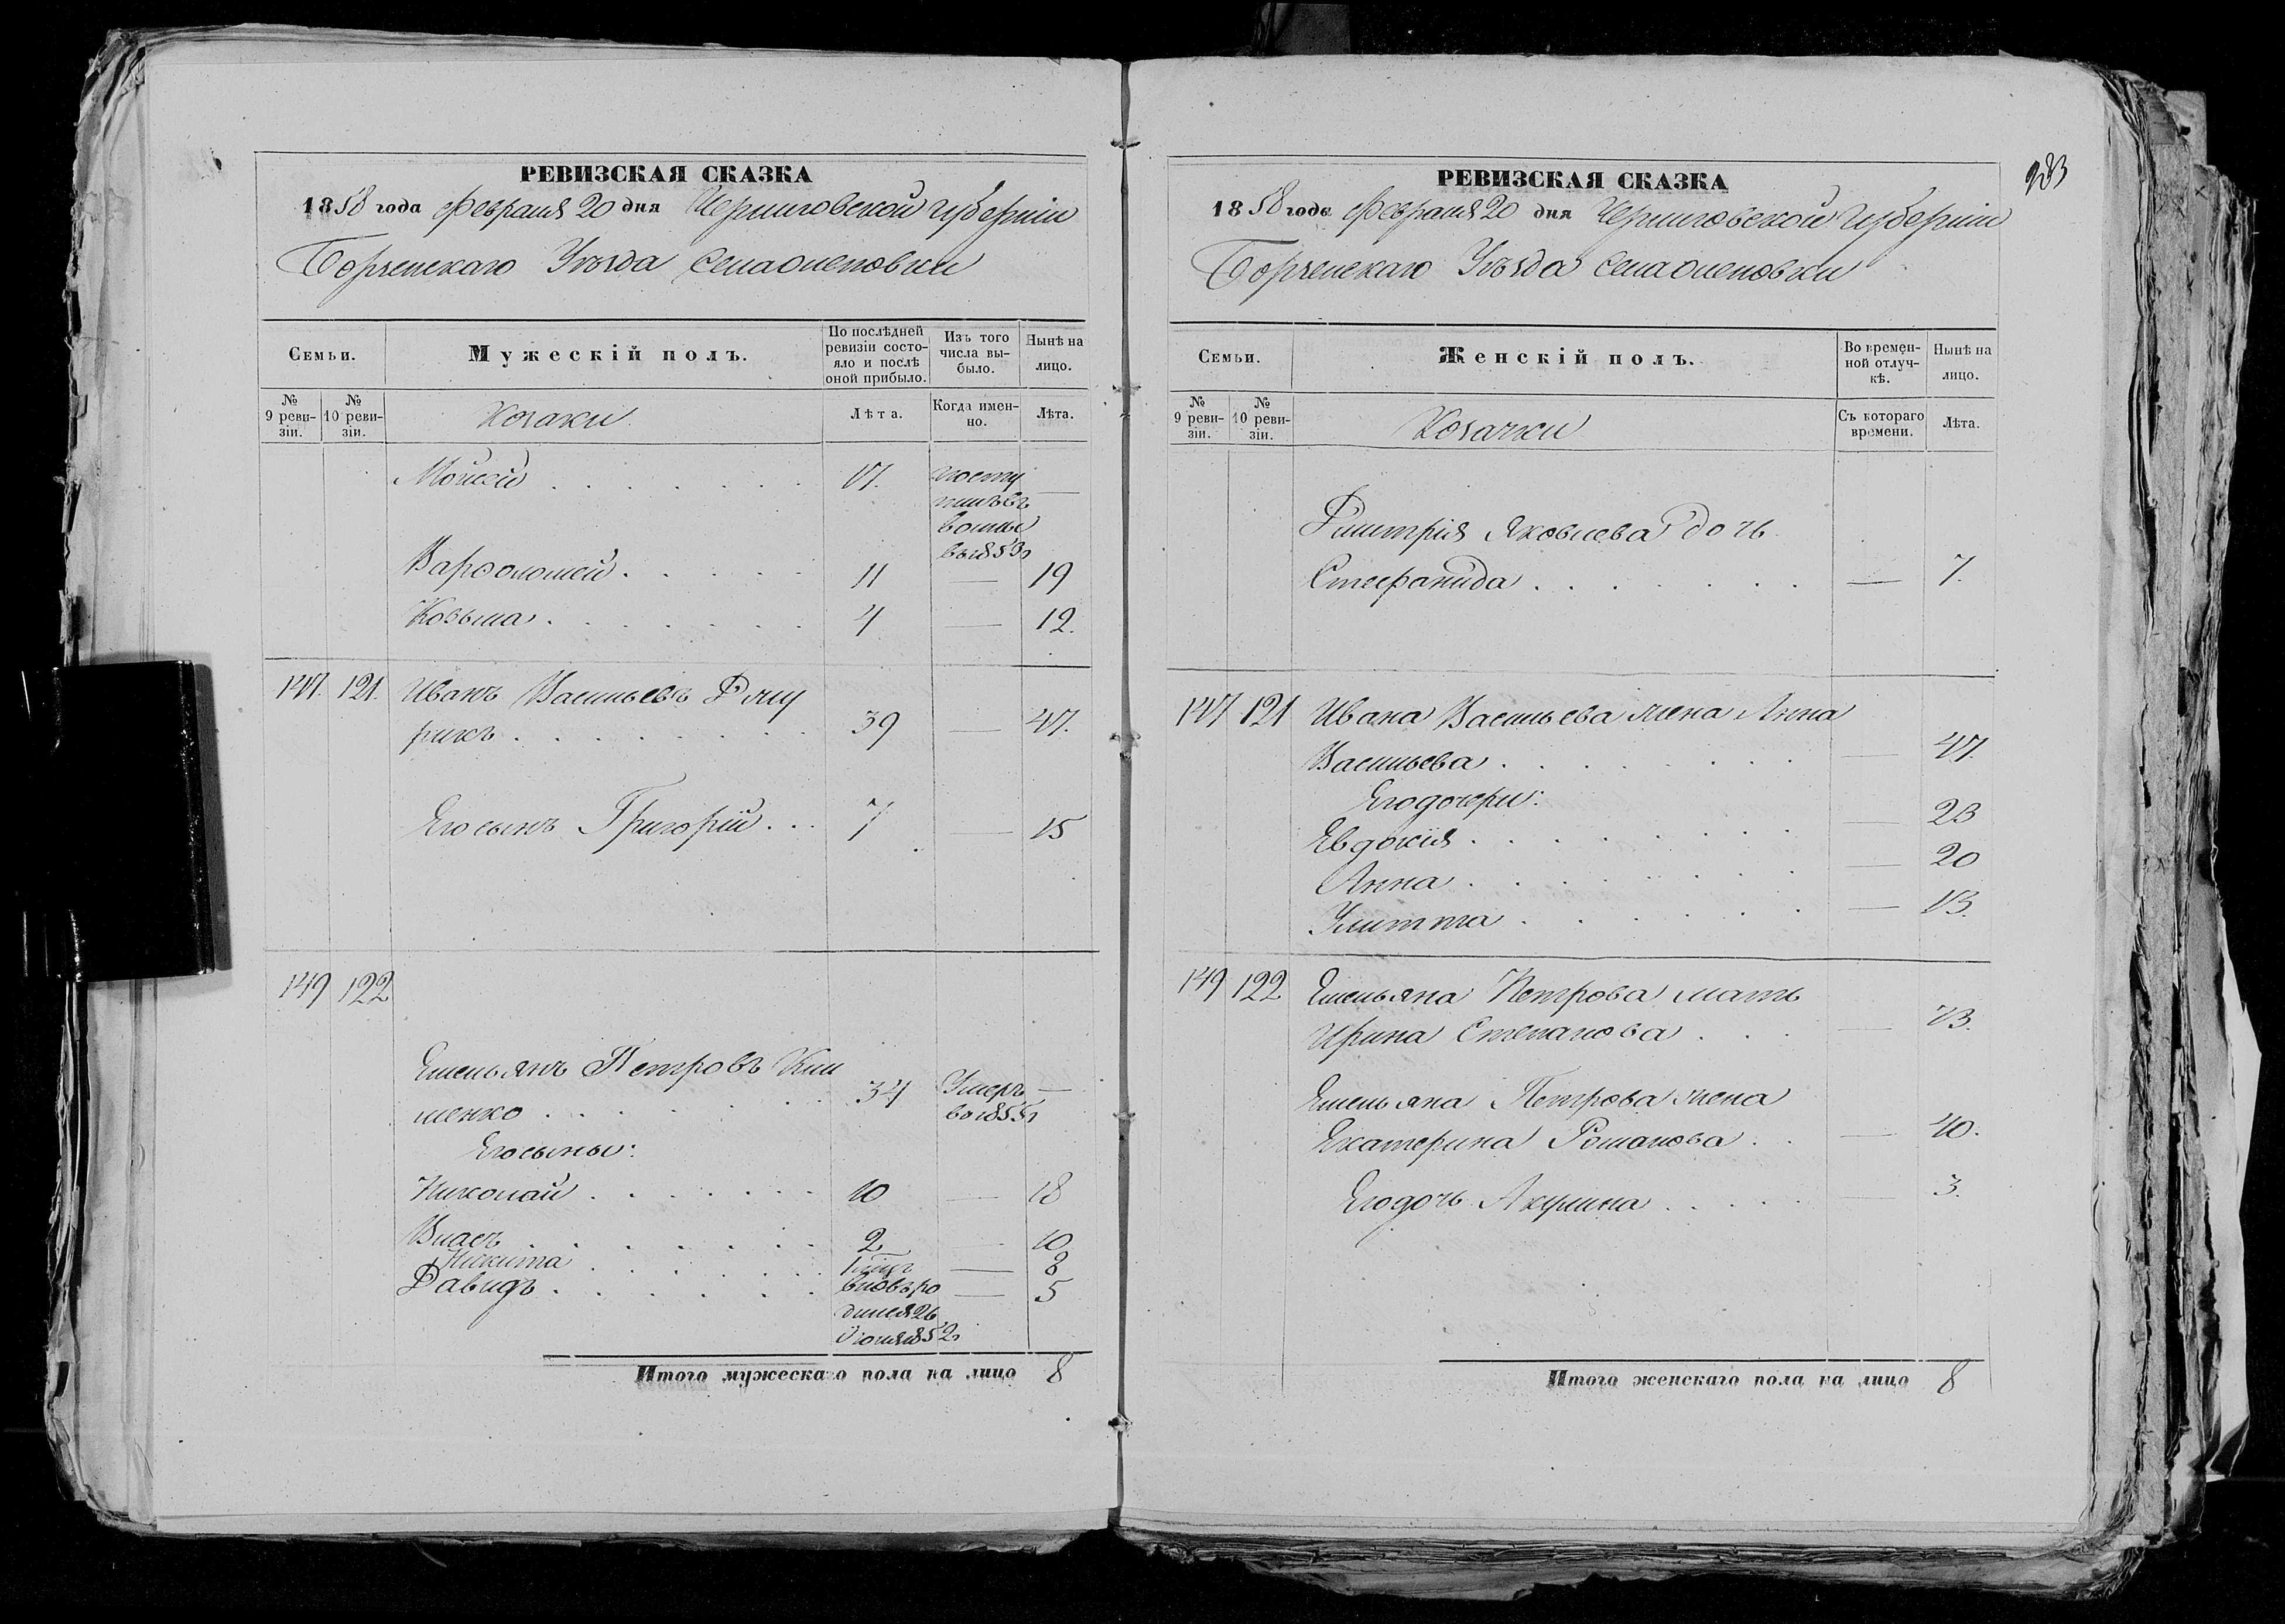 РЕВИЗСКАЯ СКАЗКА
1858 года Февраля 20 дня Черниговской Губерніи
Борзенскаго Уѣзда села Оленовки
Семьи.
Мужескій полъ.
По послѣдней ревизіи состояло и послѣ оной прибыло.
Изъ того числа выбыло.
Нынѣ на лицо.
№ 9 ревизіи.
№ 10 ревизіи.
Козаки
Лѣта.
Когда именно.
Лѣта.
Мойсей 17. посту
пилъ въ
воины
въ 1853 г
Варфоломей 11 — 19
Козьма 4 — 12.
147. 121. Иванъ Васильевъ
рикъ 39 — 47.
Его сынъ Григорій 7 — 15
149 122
Емельянъ Петровъ Кли
менко 34 Умеръ —
во 1855 г
Его сыны:
Николай 10 — 18
Власъ 2 — 10
Никита — 8
Давидъ вновь ро — 5
дился 26
Іюля 1852 г
Итого мужескаго пола на лицо 8
РЕВИЗСКАЯ СКАЗКА
1858 года Февраля 20 дня Черниговской Губерніи
Борзенскаго Уѣзда села Оленовки
Семьи.
Женскій полъ.
Во временной отлучкѣ.
Нынѣ на лицо.
№ 9 ревизіи.
№ 10 ревизіи.
Козачки
Съ котораго времени.
Лѣта.
Дмитрія Яковлева дочь
Стефанида — 7.
147 121 Ивана Васильева жена Анна
Васильева — 47.
Его дочери:
Евдокія — 23
Анна — 20
Улитта — 13.
149 122 Емельяна Петрова мать
Ирина Степанова — 73.
Емельяна Петрова жена
Екатерина Романова — 40.
Его дочь Акулина — 3.
Итого женскаго пола на лицо 8